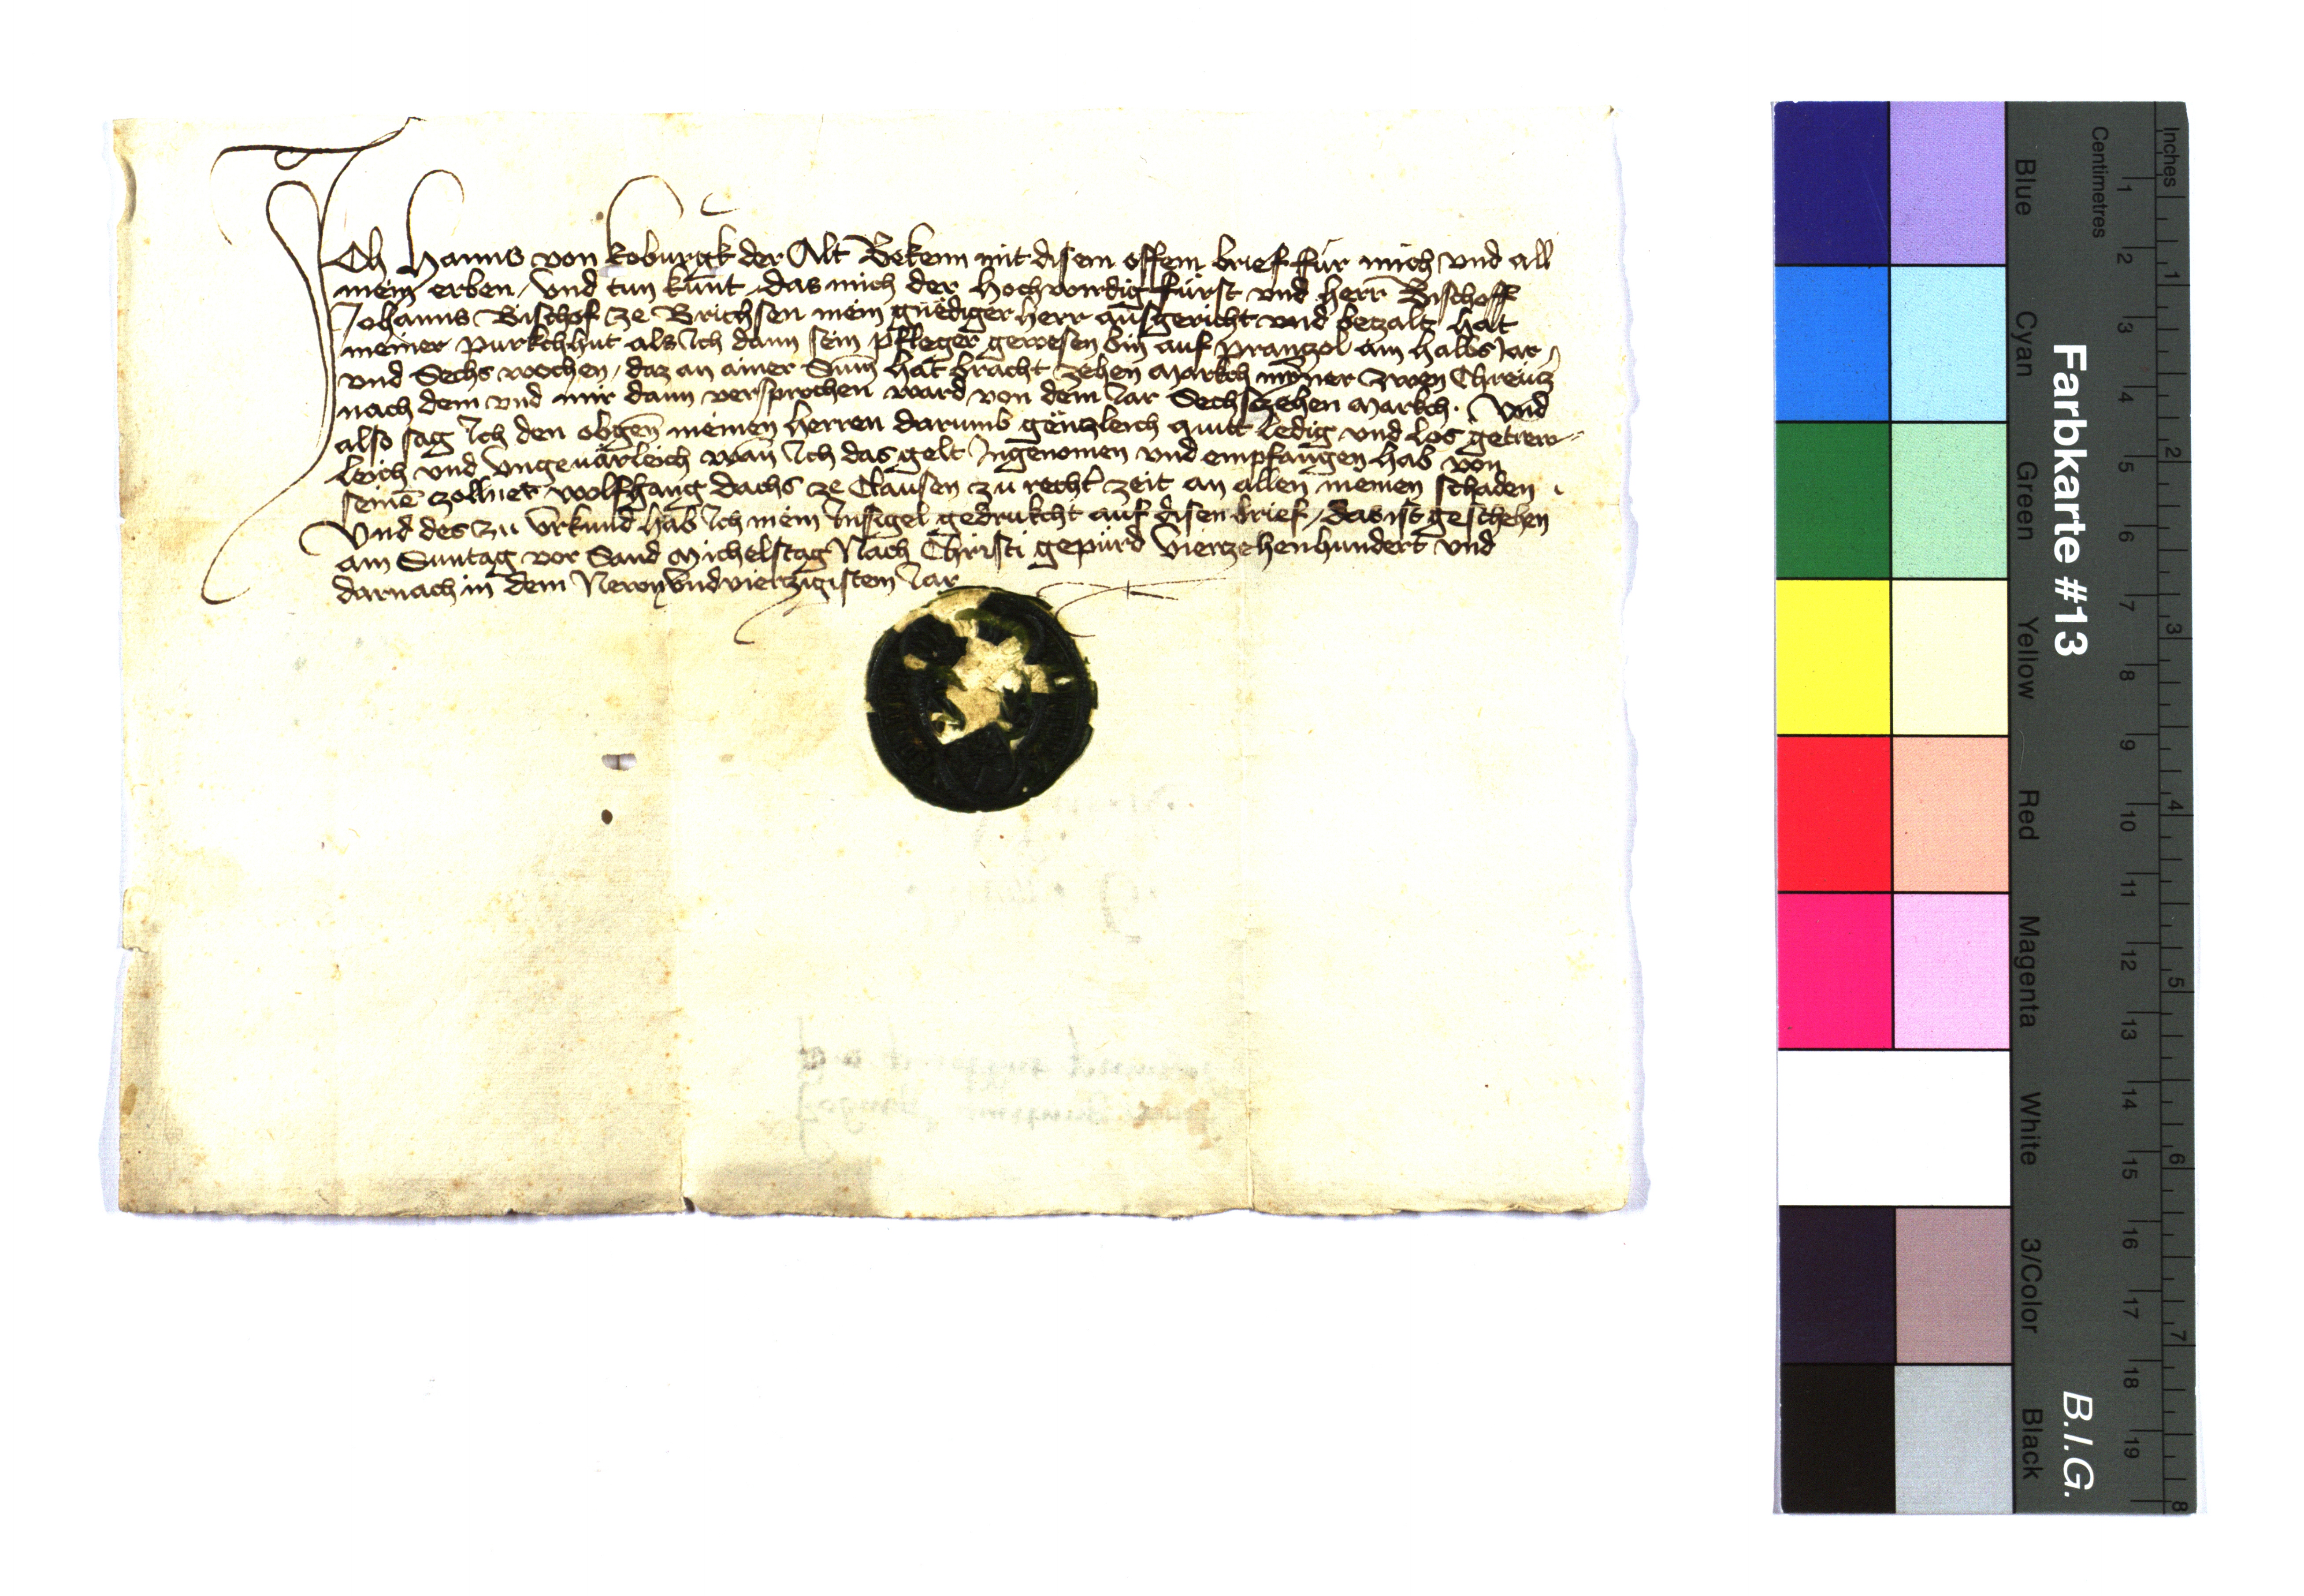 Ich Hanns von Koburgk der Alt Bekenn mit disem offem brief für mich und all
mein erben, und tun kunt, das mich der hochwirdig fürst und herr Bischoff
Johanns Bischof ze Brichsen mein gnediger herr ausgericht und betzalt hat
meiner purkchhut als Ich dann sein pfleger gewesen bin auf pranzol ain halbs Jar
und Sechs wochen, daz an ainer Sum hat bracht zehen markch mynner zwen Chreutz
nach dem und mir dann versprochen ward von dem Jar Sechszehen markch. Und
also sag Ich den obgen meinen herren darumb gentzleich quitt ledig und los getrew-
leich und ungeuärleich wan Ich das gelt Ingenomen und empfangen hab von
seinē zollner wolfhang dachs ze Clausen zu recht zeit an allen meinen schaden.
Und des zu urkund hab Ich mein Insigel gedrukcht auf disen brief, das ist geschehen
am Suntag vor Sand Michelstag Nach Christi gepurd vierzehenhundert und
darnach in dem Newnundvierzigistem Jar
Farbkarte #13
B.I.G.
Inches
Centimetres
Blue
Cyan
Green
Yellow
Red
Magenta
White
3/Color
Black
1 2 3 4 5 6 7 8 9 10 11 12 13 14 15 16 17 18 19
1 2 3 4 5 6 7 8